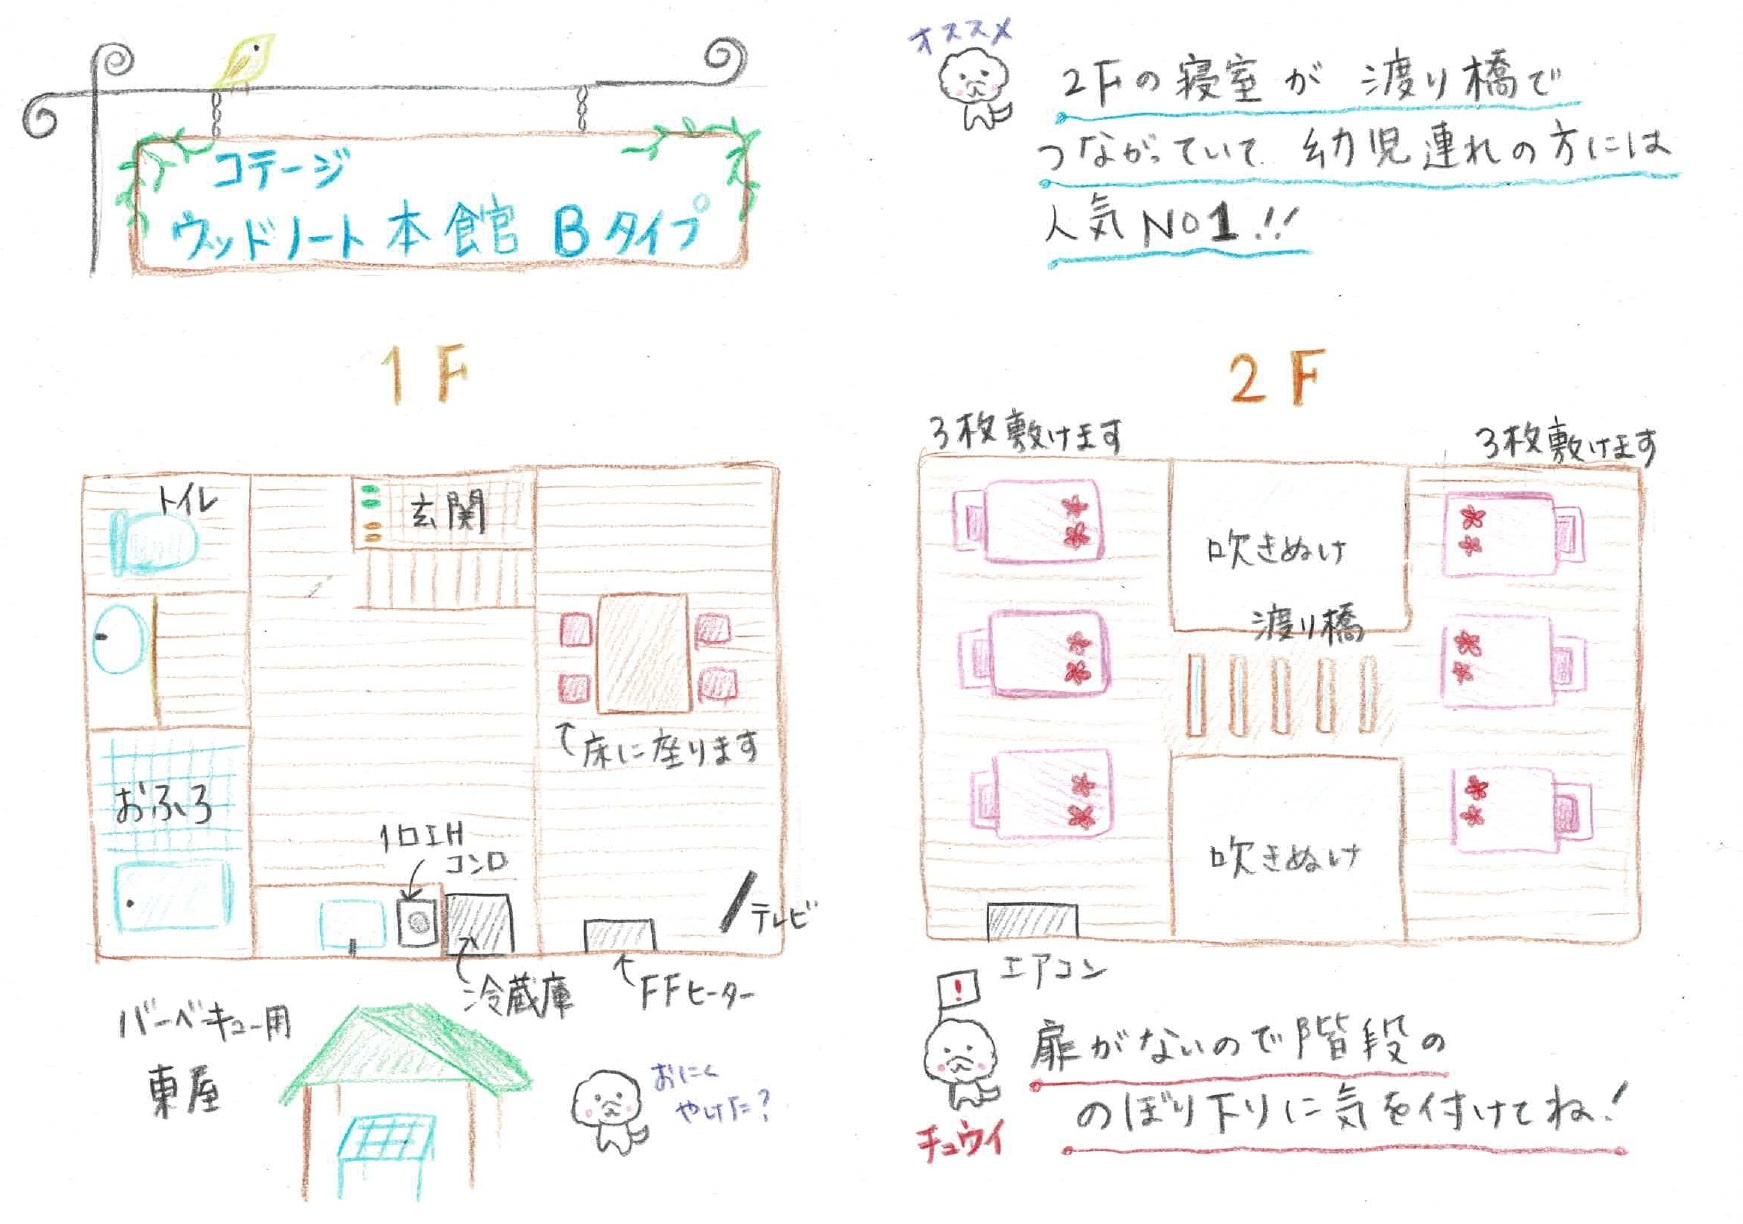 コテージ
ウッドノート 本館 Bタイプ
オススメ
2Fの寝室が 渡り橋で
つながっていて 幼児連れの方には
人気NO1!!
1F
トイレ
玄関
↑床に座ります
おふろ
1口IH
コンロ
テレビ
冷蔵庫
FFヒーター
バーベキュー用
東屋
おにく
やけた?
2F
3枚敷けます
3枚敷けます
吹きぬけ
渡り橋
吹きぬけ
エアコン
!
チュウイ
扉がないので階段の
のぼり下りに気を付けてね!